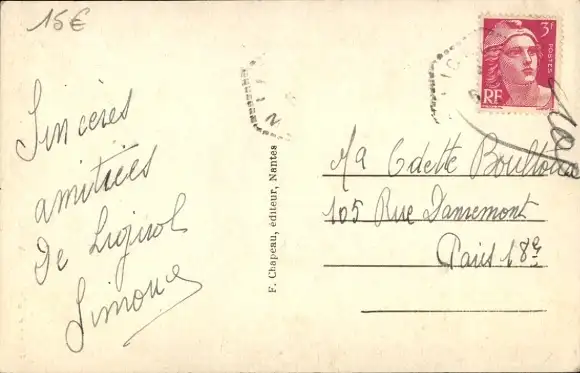 15€
Sincères
amitiées
De Lignol
Simone
F. Chapeau, éditeur, Nantes
3F
POSTES
RF
Odette
105 Rue Damremont
Paris 18e